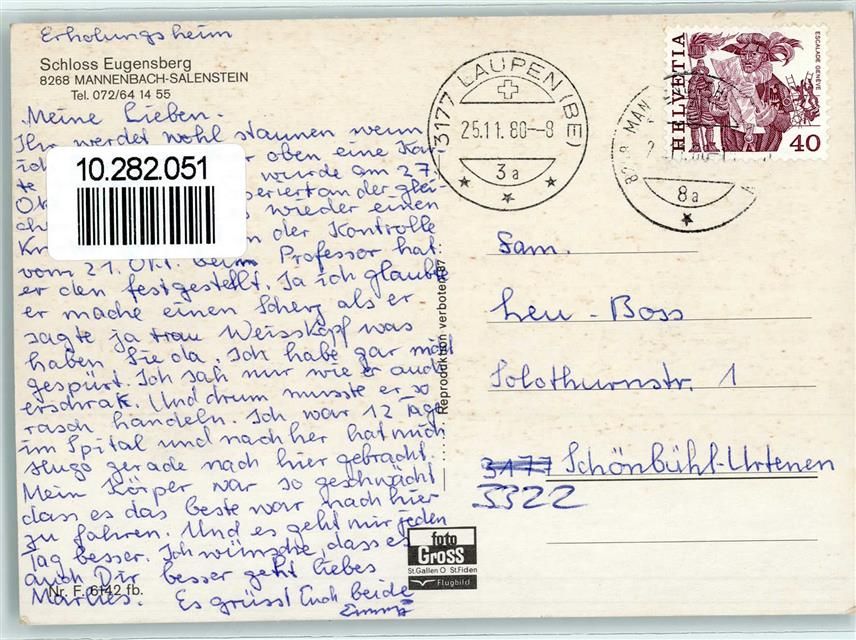 Erholungsheim
Schloss Eugensberg
8268 MANNENBACH-SALENSTEIN
Tel. 072/64 14 55
Meine Lieben.
Ihr werdet wohl staunen wenn
ich oben eine Kar
te wurde am 27.
Ok operiert an der glei
che wieder einen
Kn n der Kontrolle
vom 21. Okt. beim Professor hat
er den festgestellt. Ja ich glaubte
er mache einen Scherz als er
sagte ja trau Weisskopf was
haben Sie da. Ich habe gar nicht
gespürt. Ich sah nur wie er auch
erschrak. Und drum musste er so
rasch handeln. Ich war 12 Tage
im Spital und nachher hat mich
Hugo gerade nach hier gebracht.
Mein Körper war so geschwächt
dass es das beste war nach hier
zu fahren. Und es geht mir jeden
Tag besser. Ich wünsche, dass es
auch Dir besser geht liebes
Marlies. Es grüsst Euch beide
Emma
Nr. F. 6142 fb.
10.282.051
Reproduktion verboten 87
foto
Gross
St.Gallen O St.Fiden
Flugbild
3177 LAUPEN (BE)
25.11.80--8
3a
8268 MAN
8a
HELVETIA
ESCALADE GENÈVE
40
Fam.
Leu - Boss
Solothurnstr. 1
3177 Schönbühl-Urtenen
3322